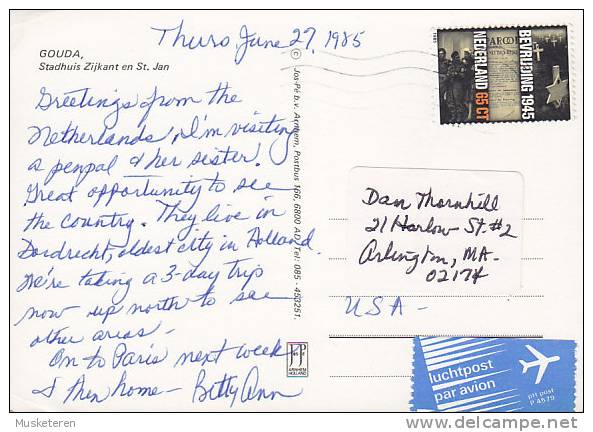 Thurs, June 27, 1985
GOUDA,
Stadhuis Zijkant en St. Jan
Greetings from the
Netherlands, I'm visiting
a penpal & her sister.
Great opportunity to see
the country. They live in
Dordrecht, oldest city in Holland.
We're taking a 3-day trip
now up north to see
other areas -
On to Paris next week
& then home - Betty Ann
© Jos-Pé b.v. Arnhem, Postbus 166, 6800 AD / Tel: 085 - 453251.
JP
ARNHEM
HOLLAND
BEVRIJDING 1945
NEDERLAND 65 CT
Dan Thornhill
21 Harlow St. #2
Arlington, MA.
02174
USA -
luchtpost
par avion
ptt post
P 4579
Musketeren
delcampe.net